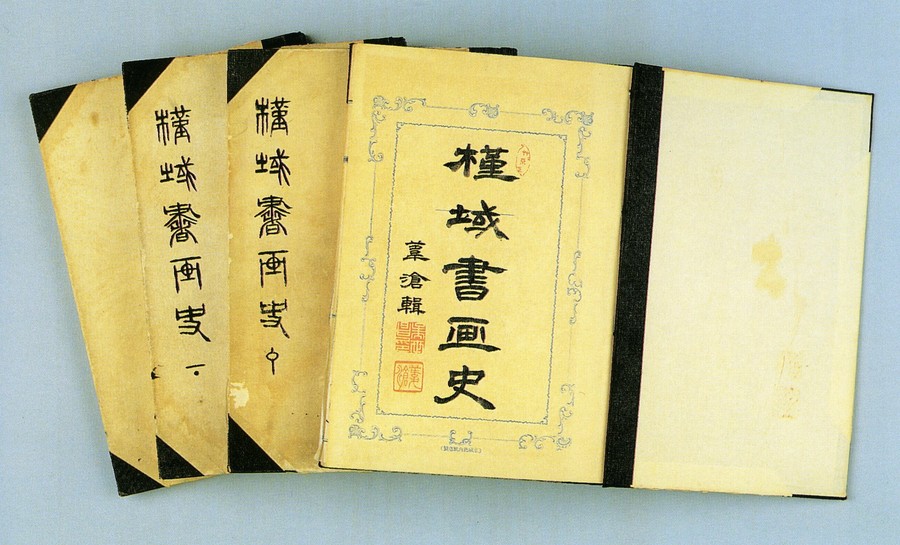 槿域書画史 下
槿域書画史 中
槿域書画史
葦滄輯